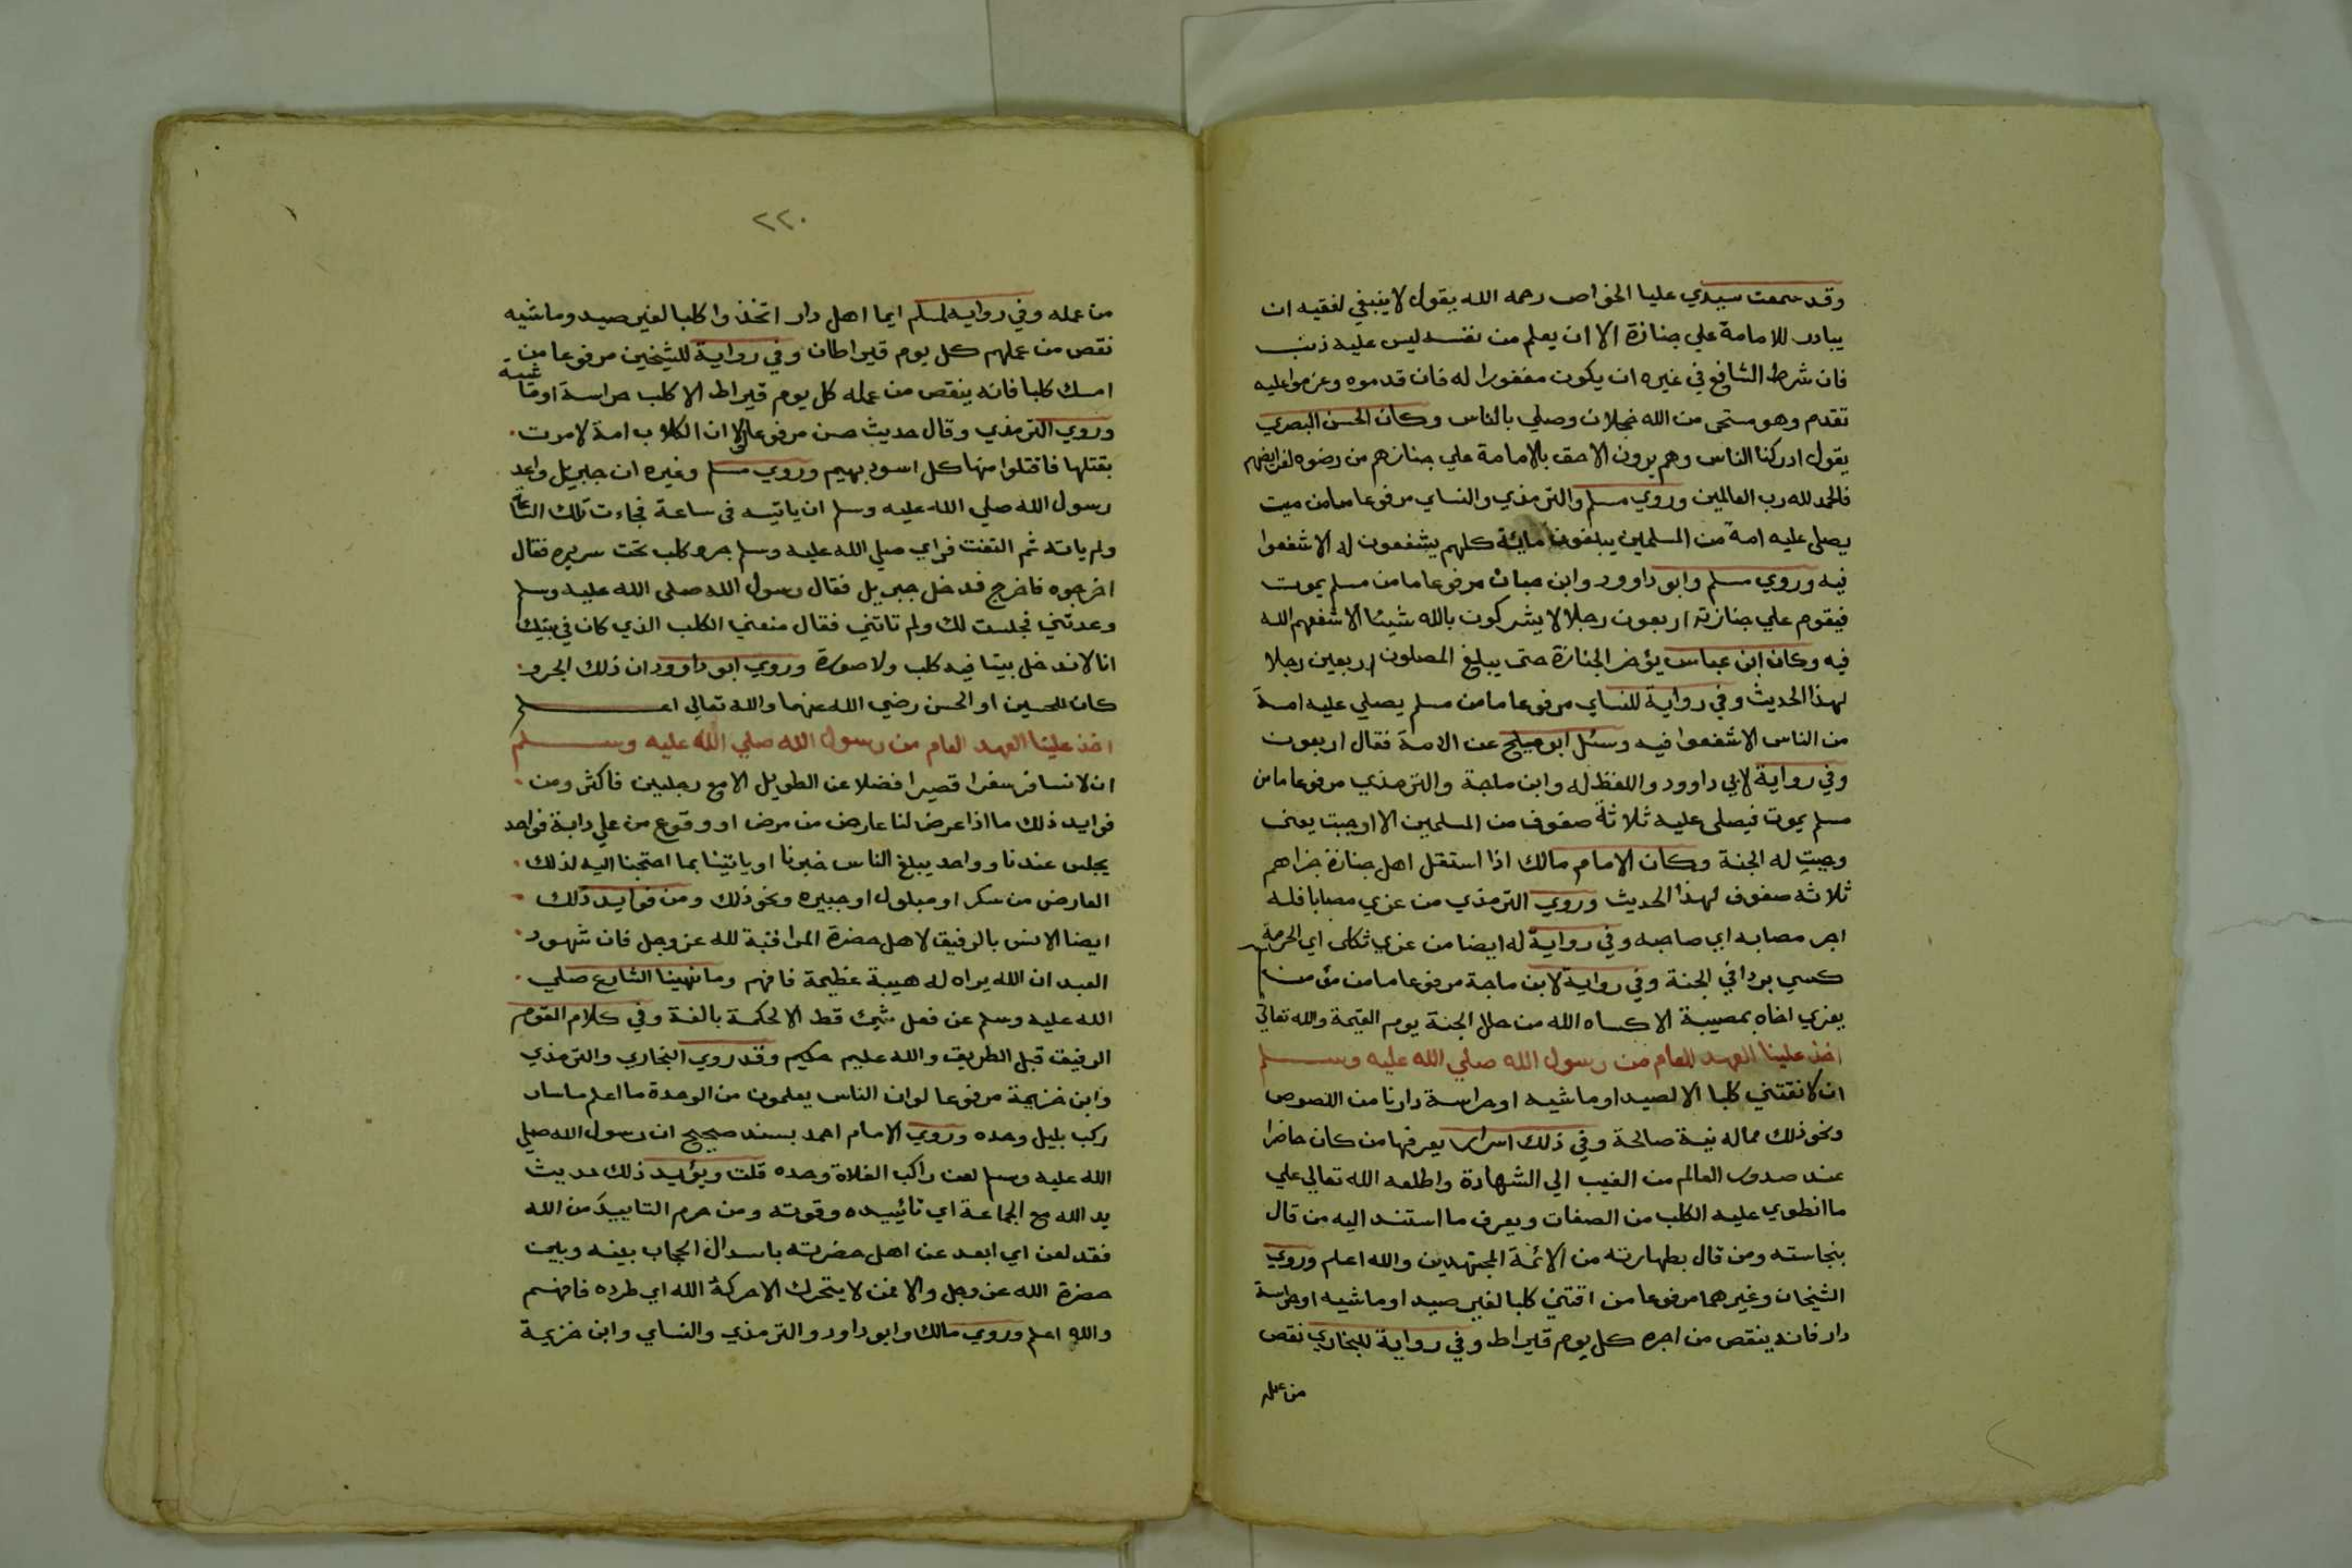 وقد سمعت سيدي عليا الخواص رحمه الله يقول لا ينبغي لفقيه ان
يبادر للامامة علي جنازة الا ان يعلم من نفسه ليس عليه ذنب
فان شرط الشافع في غيره ان يكون مغفورا له فان قدموه وعزموا عليه
تقدم وهو مستحى من الله خجلان وصلي بالناس وكان الحسن البصري
يقول ادركنا الناس وهم يرون الاحق بالامامة علي جنازهم من رضوه لفرايضهم
فالحمد لله رب العالمين وروي مسلم والترمذي والنساي مرفوعا ما من ميت
يصلي عليه امة من المسلمين يبلغون مائة كلهم يشفعون له الا شفعوا
فيه وروي مسلم وابو داوود وابن ماجه مرفوعا ما من مسلم يموت
فيقوم علي جنازته اربعون رجلا لا يشركون بالله شيئا الا شفعهم الله
فيه وكان ابن عباس يؤخر الجنازة حتى يبلغ المصلون اربعين رجلا
لهذا الحديث وفي رواية للنساي مرفوعا ما من مسلم يصلي عليه امة
من الناس الا شفعوا فيه وسئل ابو مليح عن الامة فقال اربعون
وفي رواية لابي داوود واللفظ له وابن ماجة والترمذي مرفوعا ما من
مسلم يموت فيصلى عليه ثلاثة صفوف من المسلمين الا اوجبت يعني
وجبت له الجنة وكان الامام مالك اذا استقل اهل جنازة جزاهم
ثلاثه صفوف لهذا الحديث وروي الترمذي من عزي مصابا فله
اجر مصابه اي صاحبه وفي رواية له ايضا من عزي ثكلى اي الحرمة
كسي بردا في الجنة وفي رواية لابن ماجة مرفوعا ما من مؤمن
يعزي اخاه بمصيبة الا كساه الله من حلل الجنة يوم القيمة والله تعالي
اخذ علينا العهد العام من رسول الله صلي الله عليه وسلم
ان لا نقتني كلبا الا لصيد او ماشيه او حراسة دارنا من اللصوص
ونحو ذلك مما له نية صالحة وفي ذلك اسرار يعرفها من كان حاضرا
عند صدور العالم من الغيب الي الشهادة واطلعه الله تعالي علي
ما انطوي عليه الكلب من الصفات ويعرف ما استند اليه من قال
بنجاسته ومن قال بطهارته من الائمة المجتهدين والله اعلم وروي
الشيخان وغيرهما مرفوعا من اقتني كلبا لغير صيد او ماشيه او حراسة
دار فانه ينقص من اجره كل يوم قيراط وفي رواية للبخاري نقص
من عمله
٢٢٠
من عمله وفي رواية لمسلم ايما اهل دار اتخذوا كلبا لغير صيد وماشيه
نقص من عملهم كل يوم قيراطان وفي رواية للشيخين مرفوعا من
امسك كلبا فانه ينقص من عمله كل يوم قيراط الا كلب حراسة او ماشية
وروي الترمذي وقال حديث حسن مرفوعا لولا ان الكلاب امة لامرت
بقتلها فاقتلوا منها كل اسود بهيم وروي مسلم وغيره ان جبريل واعد
رسول الله صلي الله عليه وسلم ان ياتيه في ساعة فجاءت تلك الساعة
ولم ياته ثم التفت فراي صلي الله عليه وسلم جرو كلب تحت سريره فقال
اخرجوه فاخرج فدخل جبريل فقال رسول الله صلى الله عليه وسلم
وعدتني فجلست لك ولم تاتني فقال منعني الكلب الذي كان في بيتك
انا لا ندخل بيتا فيه كلب ولا صورة وروي ابو داوود ان ذلك الجرو
كان للحسين او الحسن رضي الله عنهما والله تعالى اعلم
اخذ علينا العهد العام من رسول الله صلي الله عليه وسلم
ان لا نسافر سفرا قصيرا فضلا عن الطويل الا مع رجلين فاكثر ومن
فوايد ذلك ما اذا عرض لنا عارض من مرض او وقوع من علي دابة فواحد
يجلس عندنا وواحد يبلغ الناس خبرنا او ياتينا بما احتجنا اليه لذلك
العارض من سكر او مبلول او جبيره ونحو ذلك ومن فوايد ذلك
ايضا الانس بالرفيق لاهل حضرة المراقبة لله عز وجل فان شهود
العبد ان الله يراه له هيبة عظيمة فافهم وما نهينا الشارع صلي
الله عليه وسلم عن فعل شيئ قط الا لحكمة بالغة وفي كلام القوم
الرفيق قبل الطريق والله عليم حكيم وقد روي البخاري والترمذي
وابن خزيمة مرفوعا لو ان الناس يعلمون من الوحدة ما اعلم ما سار
ركب بليل وحده وروي الامام احمد بسند صحيح ان رسول الله صلي
الله عليه وسلم لعن راكب الفلاة وحده قلت ويؤيد ذلك حديث
يد الله مع الجماعة اي تائييده وقوته ومن حرم التاييد من الله
فقد لعن اي ابعد عن اهل حضرته باسدال الحجاب بينه وبين
حضرة الله عز وجل والا فمن لا يتحرك الا حركة الله اي طرده فافهم
والله اعلم وروي مالك وابو داود والترمذي والنساي وابن خزيمة